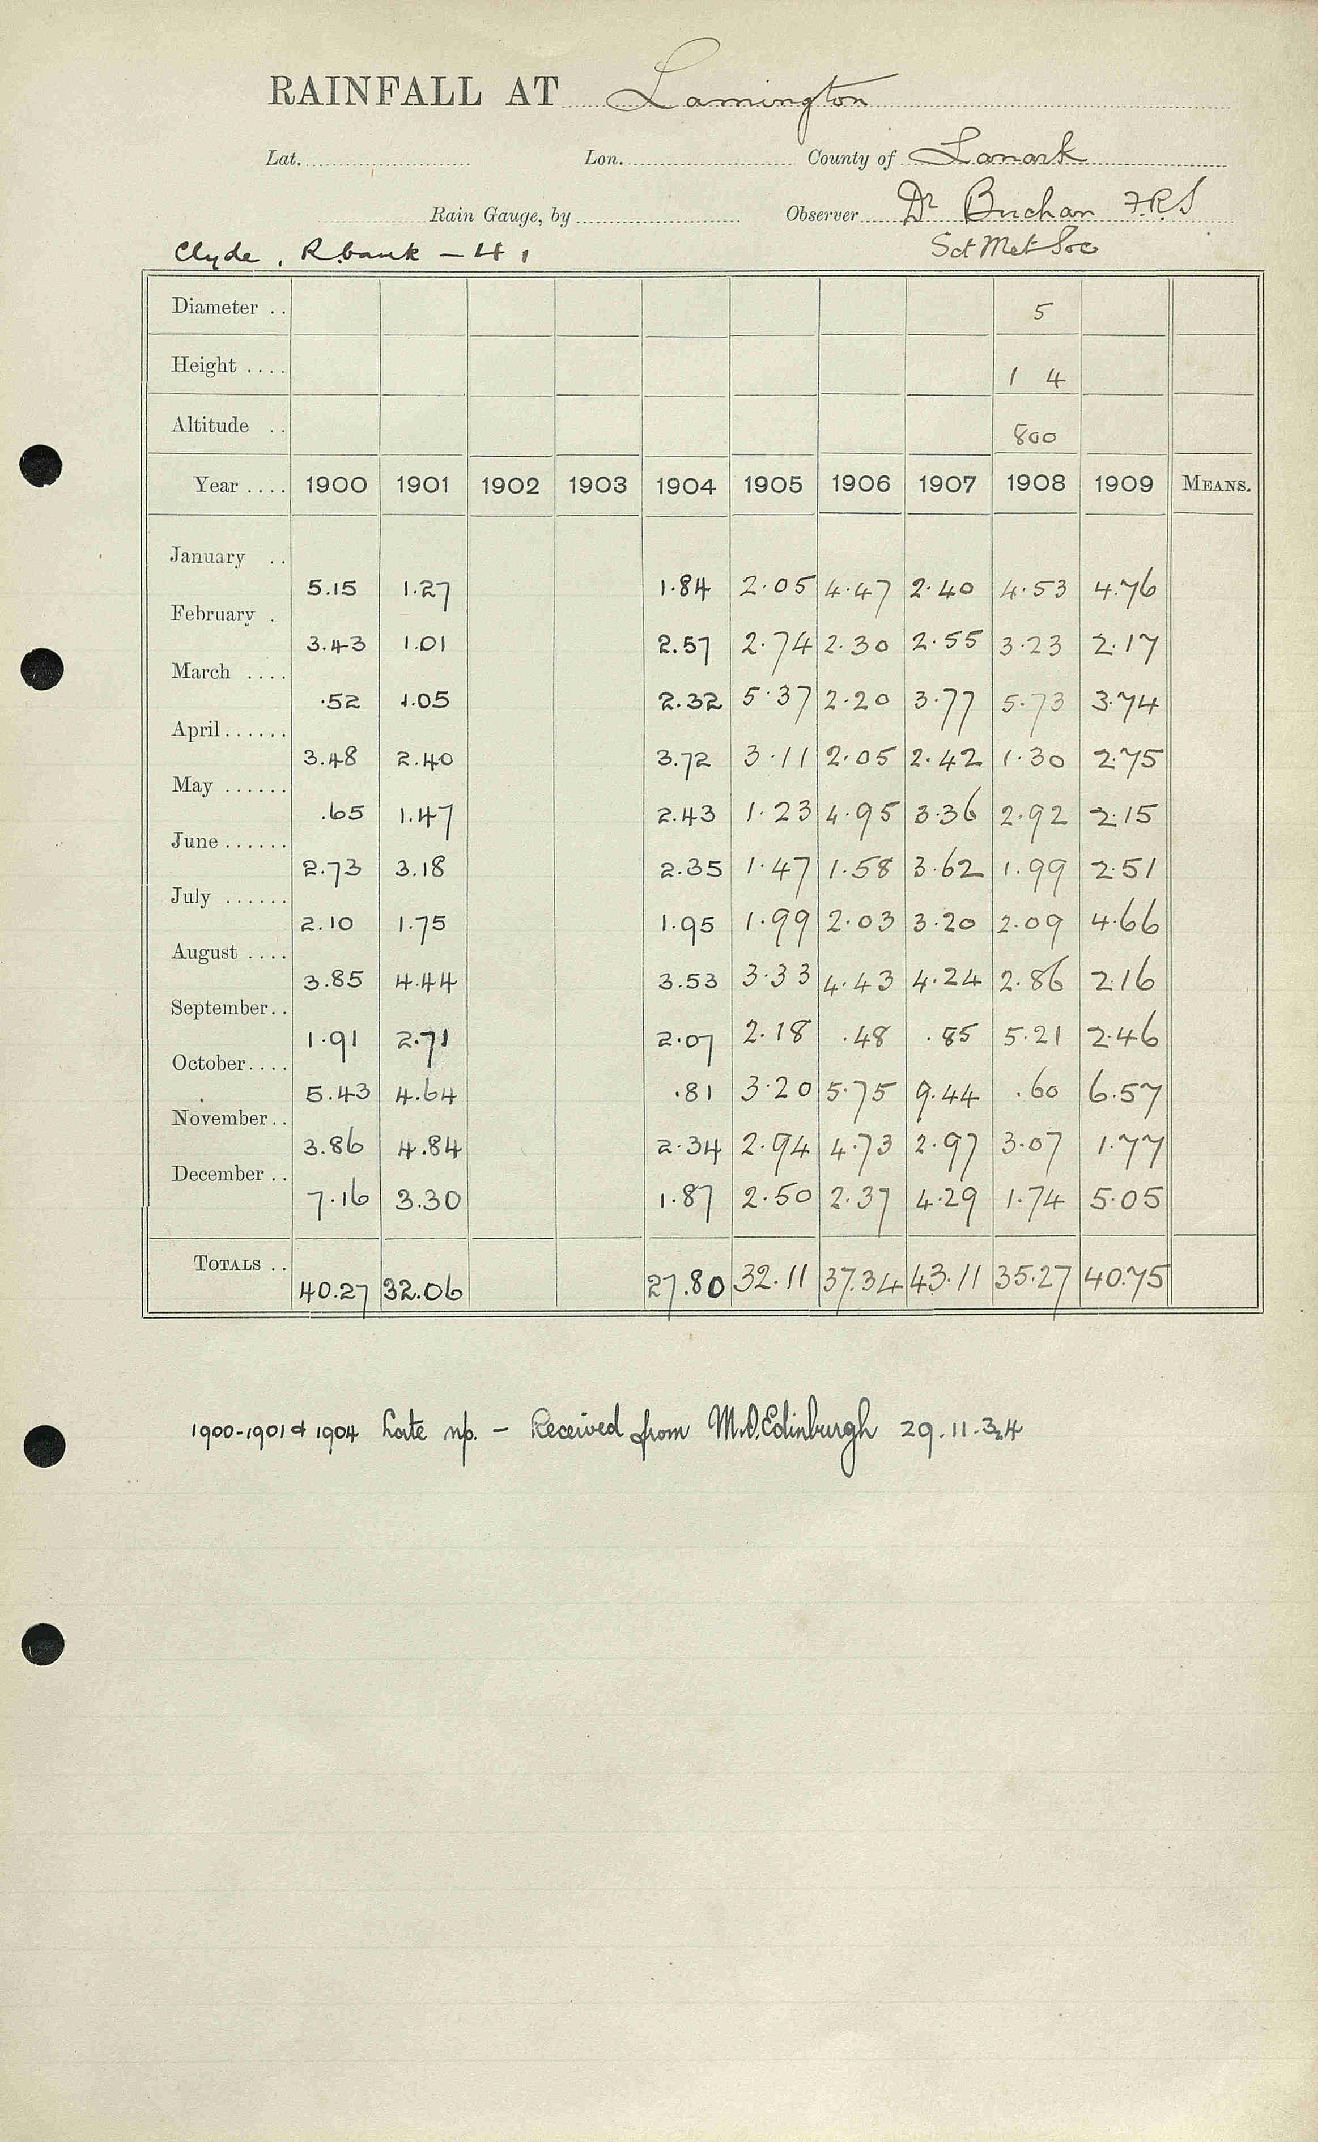 RAINFALL AT Lamington
Lat. Lon. County of Lanark
Rain Gauge, by Observer Dr Buchan F.R.S
Clyde. R.bank - 41 Sct Met Soc
Diameter .. 5
Height .... 1 4
Altitude .. 800
Year .... 1900 1901 1902 1903 1904 1905 1906 1907 1908 1909 MEANS.
January .. 5.15 1.27 1.84 2.05 4.47 2.40 4.53 4.76
February . 3.43 1.01 2.57 2.74 2.30 2.55 3.23 2.17
March .... .52 1.05 2.32 5.37 2.20 3.77 5.73 3.74
April...... 3.48 2.40 3.72 3.11 2.05 2.42 1.30 2.75
May ...... .65 1.47 2.43 1.23 4.95 3.36 2.92 2.15
June...... 2.73 3.18 2.35 1.47 1.58 3.62 1.99 2.51
July ...... 2.10 1.75 1.95 1.99 2.03 3.20 2.09 4.66
August .... 3.85 4.44 3.53 3.33 4.43 4.24 2.86 2.16
September.. 1.91 2.71 2.07 2.18 .48 .85 5.21 2.46
October.... 5.43 4.64 .81 3.20 5.75 9.44 .60 6.57
November.. 3.86 4.84 2.34 2.94 4.73 2.97 3.07 1.77
December .. 7.16 3.30 1.87 2.50 2.37 4.29 1.74 5.05
TOTALS .. 40.27 32.06 27.80 32.11 37.34 43.11 35.27 40.75
1900-1901 & 1904 Late np. - Received from M.O. Edinburgh 29.11.34